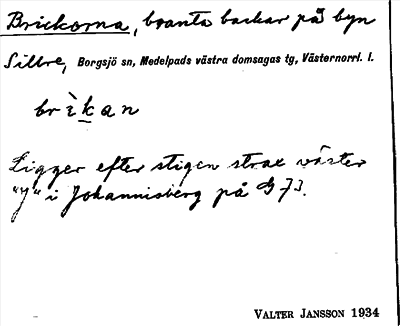 Brickorna, branta backar på byn
Sillre, Borgsjö sn, Medelpads västra domsagas tg, Västernorrl. l.
brìkan
Ligger efter stigen strax väster
"J" i Johannisberg på G 73.
VALTER JANSSON 1934